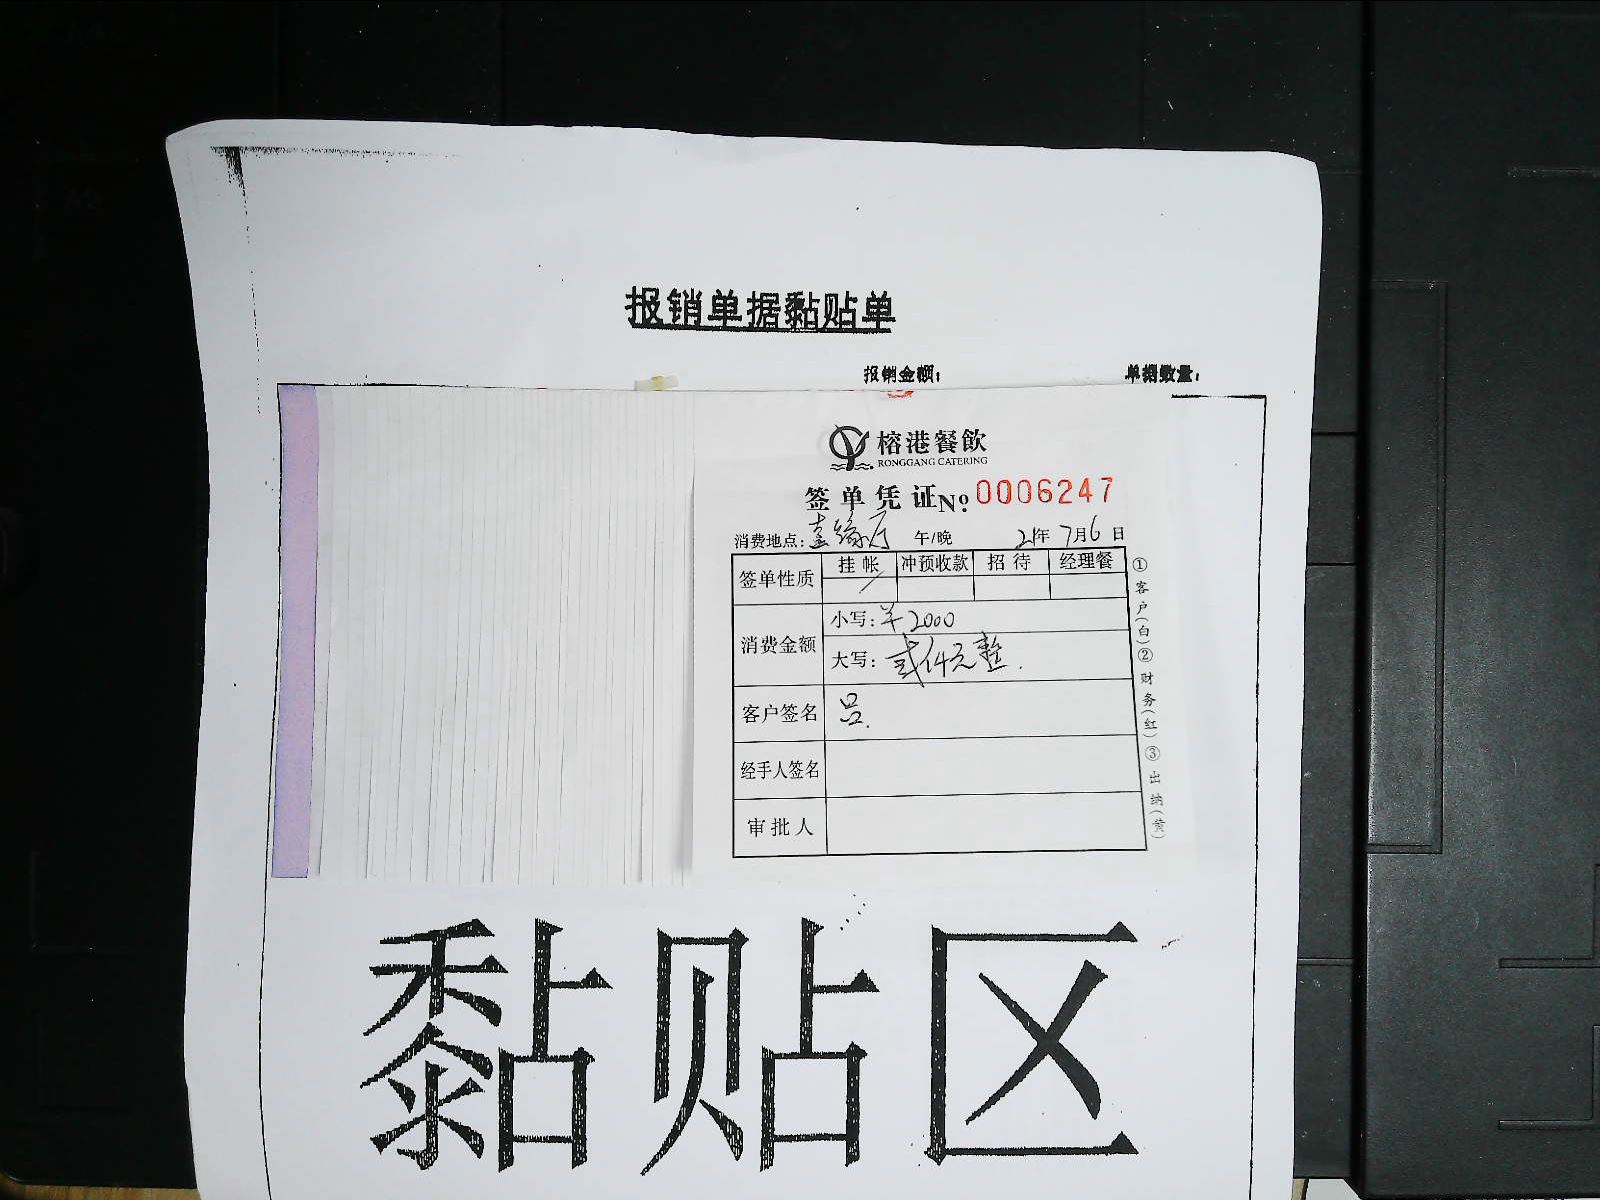 报销单据黏贴单
报销金额： 单据数量：
榕港餐飲
RONGGANG CATERING
签单凭证No.0006247
消费地点：喜缘厅 午/晚 21年7月6日
签单性质 挂帐 冲预收款 招待 经理餐
消费金额 小写：¥2000
大写：贰仟元整.
客户签名 吕.
经手人签名
审批人
①客户(白)②财务(红)③出纳(黄)
黏贴区